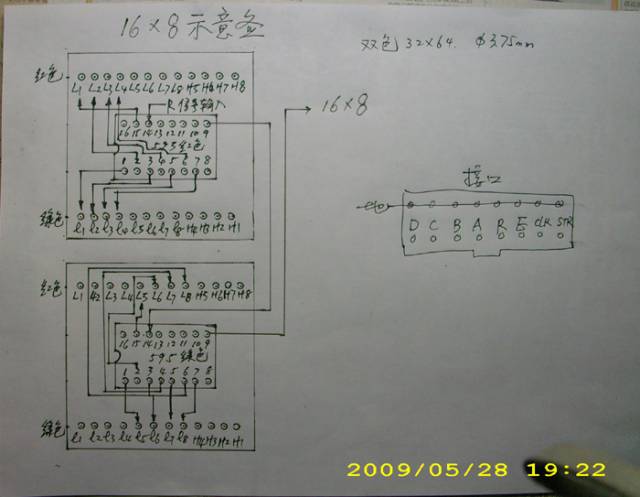 16×8 示意图
双色 32×64. Φ3.75mm
红色 L1 L2 L3 L4 L5 L6 L7 L8 H5 H6 H7 H8
R 信号输入
16 15 14 13 12 11 10 9
595 红色
1 2 3 4 5 6 7 8
绿色 L1 L2 L3 L4 L5 L6 L7 L8 H4 H3 H2 H1
→ 16×8
接口
D C B A R E CLK STR
红色 L1 L2 L3 L4 L5 L6 L7 L8 H5 H6 H7 H8
16 15 14 13 12 11 10 9
595 绿色
1 2 3 4 5 6 7 8
绿色 L1 L2 L3 L4 L5 L6 L7 L8 H4 H3 H2 H1
2009/05/28 19:22